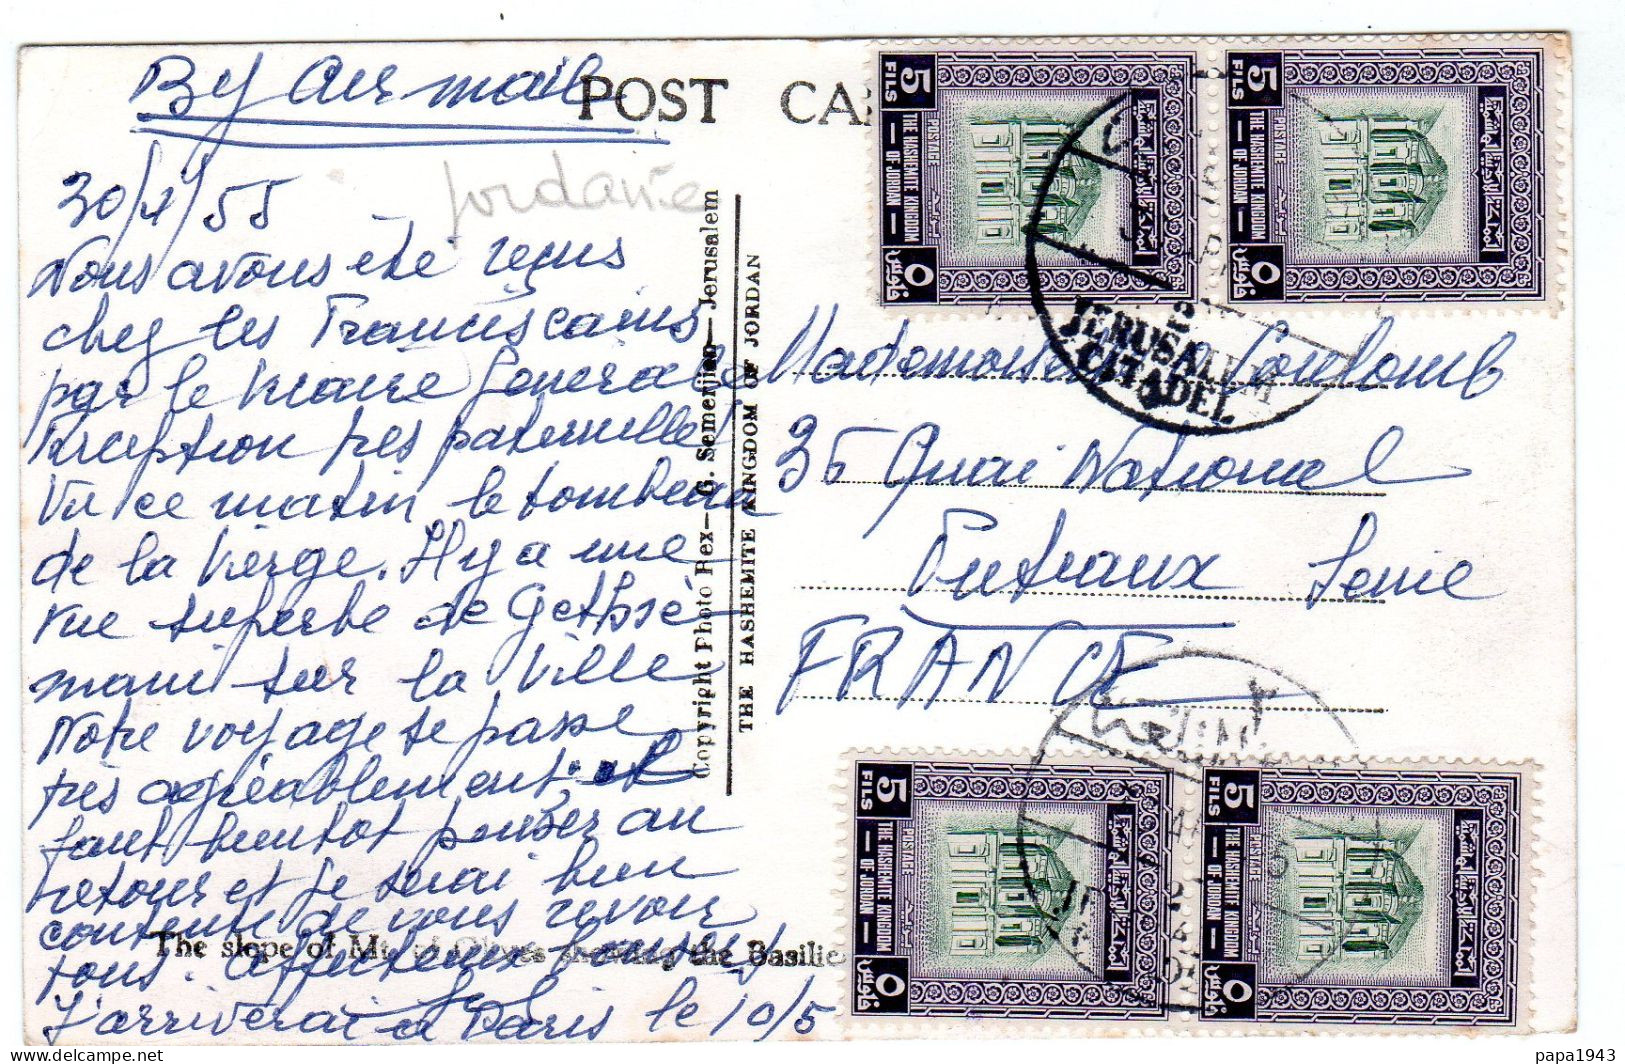 By Air mail
POST CA
Jordanie
30/4/55
Nous avons été reçus
chez les Franciscains
par le Vicaire General
reception très paternelle!
Vu ce matin le tombeau
de la Vierge. Il y a une
vue superbe de Gethsé-
mani sur la Ville
Notre voyage se passe
très agréablement. il
faut bientot penser au
retour et je serai bien
contente de vous revoir
tous. Affectueux baisers
J'arriverai à Paris le 10/5
The slope of Mt. of Olives showing the Basilic
Copyright Photo Rex—G. Semerjian—Jerusalem
THE HASHEMITE KINGDOM OF JORDAN
Mademoiselle Coulomb
35 Quai National
Puteaux Seine
FRANCE
JERUSALEM
CITADEL
5 FILS
POSTAGE
THE HASHEMITE KINGDOM
OF JORDAN
٥ فلوس
5 FILS
POSTAGE
THE HASHEMITE KINGDOM
OF JORDAN
٥ فلوس
5 FILS
POSTAGE
THE HASHEMITE KINGDOM
OF JORDAN
٥ فلوس
5 FILS
POSTAGE
THE HASHEMITE KINGDOM
OF JORDAN
٥ فلوس
delcampe.net
papa1943